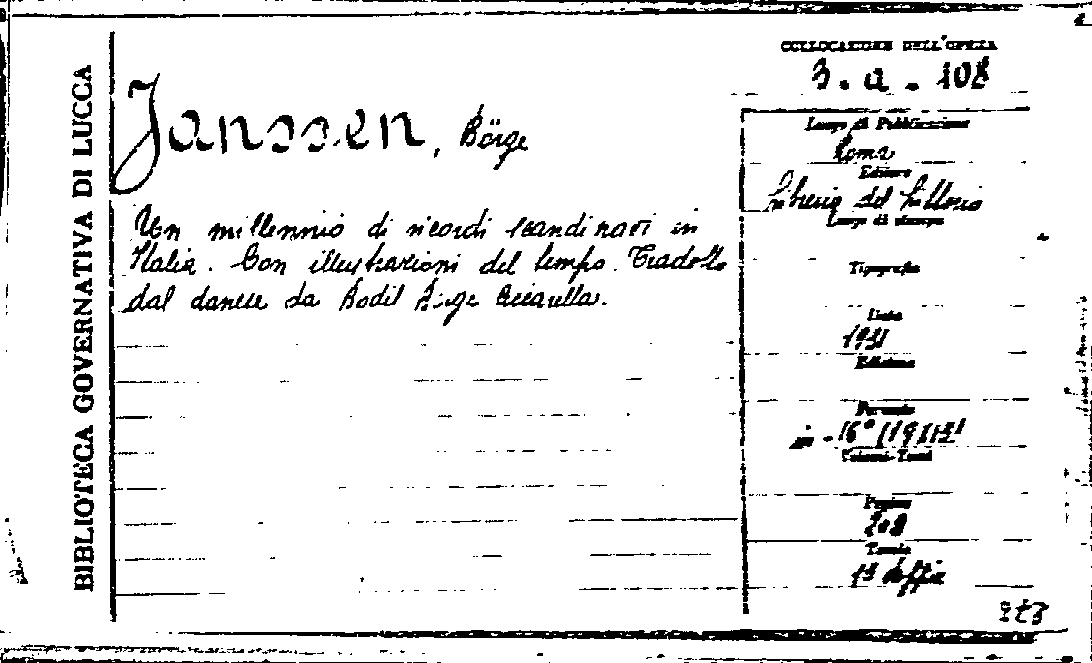 BIBLIOTECA GOVERNATIVA DI LUCCA
COLLOCAZIONE DELL'OPERA
3. a. 108
Janssen, Börge
Un millennio di ricordi scandinavi in
Italia. Con illustrazioni del tempo. Tradotto
dal danese da Bodil Börge
Luogo di Pubblicazione
Roma
Editore
Libreria del Littorio
Luogo di stampa
Tipografia
Data
1931
Edizione
Formato
in-16°
Volumi-Tomi
Pagine
208
Tavole